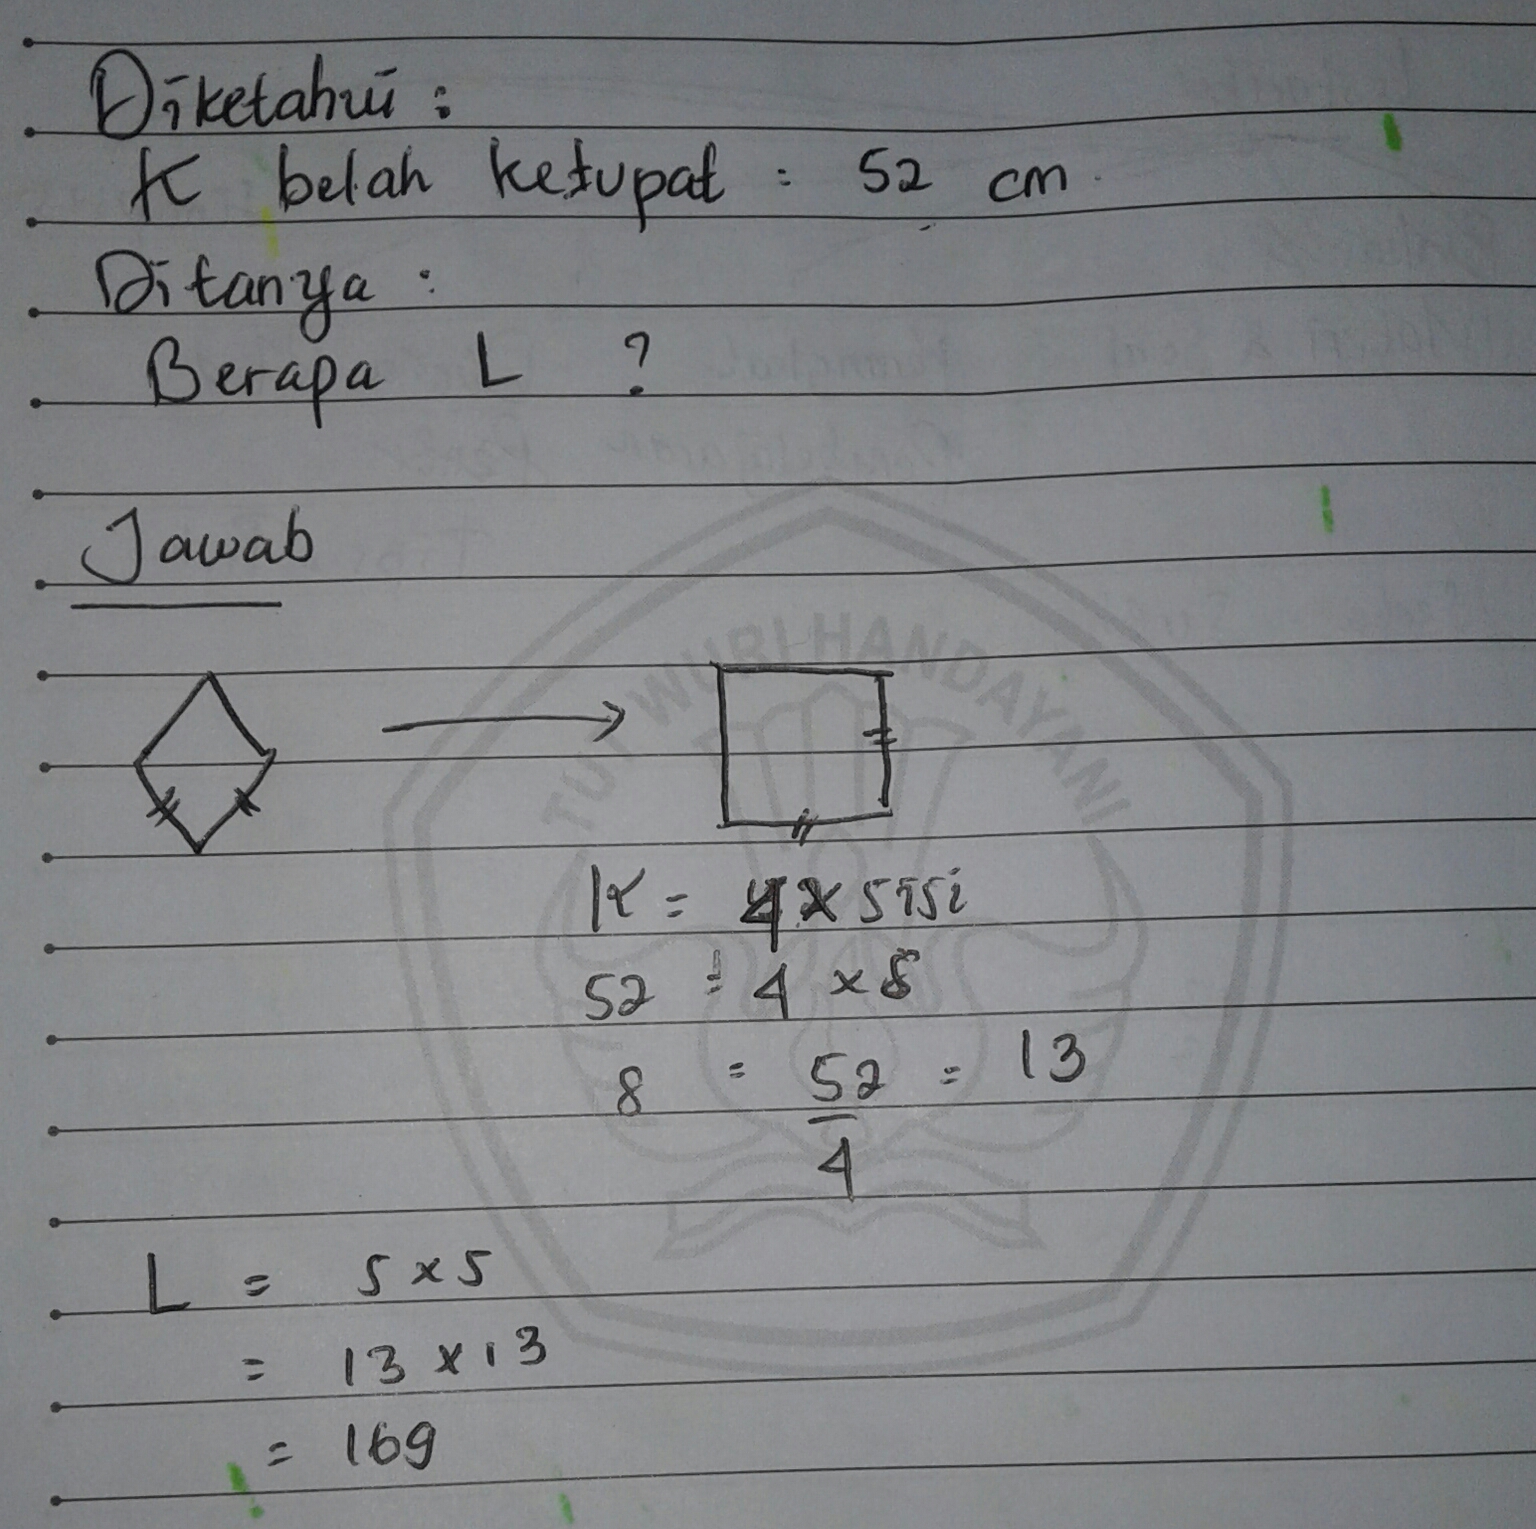 Diketahui :
K belah ketupat = 52 cm
Ditanya :
Berapa L ?
Jawab
TUT WURI HANDAYANI
K = 4 x sisi
52 = 4 x s
s = 52/4 = 13
L = s x s
= 13 x 13
= 169